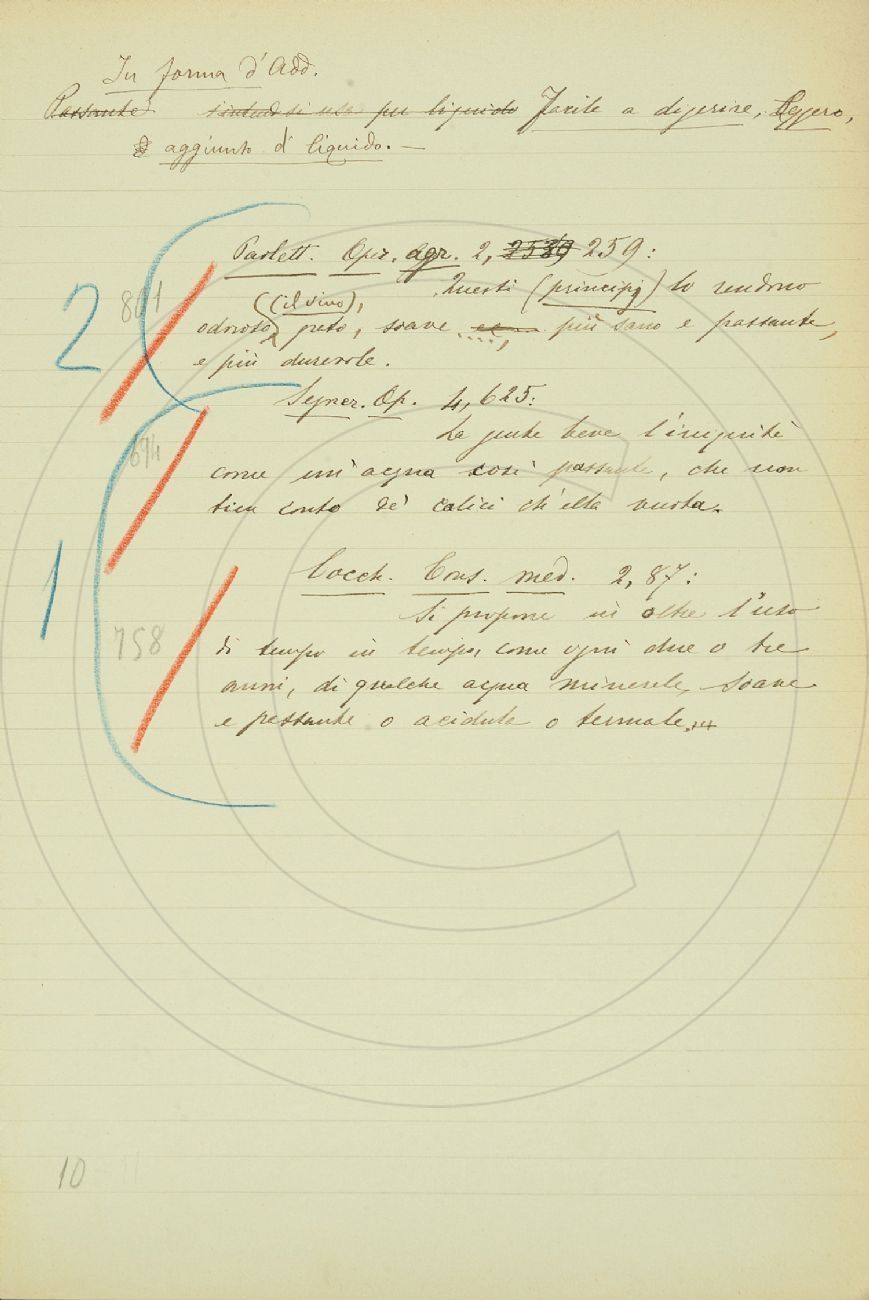 In forma d'Add.
Passante si usa per liquido Facile a digerire, Leggero,
aggiunto di liquido. —
Paolett. Oper. agr. 2, 259:
2 801 Questi (principj) lo rendono
odoroso (il vino), grato, soave ...., più sano e passante,
e più durevole.
Segner. Op. 4, 625:
694 La gente beve l'iniquità
come un'acqua così passante, che non
tien conto de' calici ch'ella vuota.
1 Cocch. Cons. med. 2, 87:
758 Si propone in oltre l'uso
di tempo in tempo, come ogni due o tre
anni, di qualche acqua minerale, soave
e passante o acidula o termale.
10